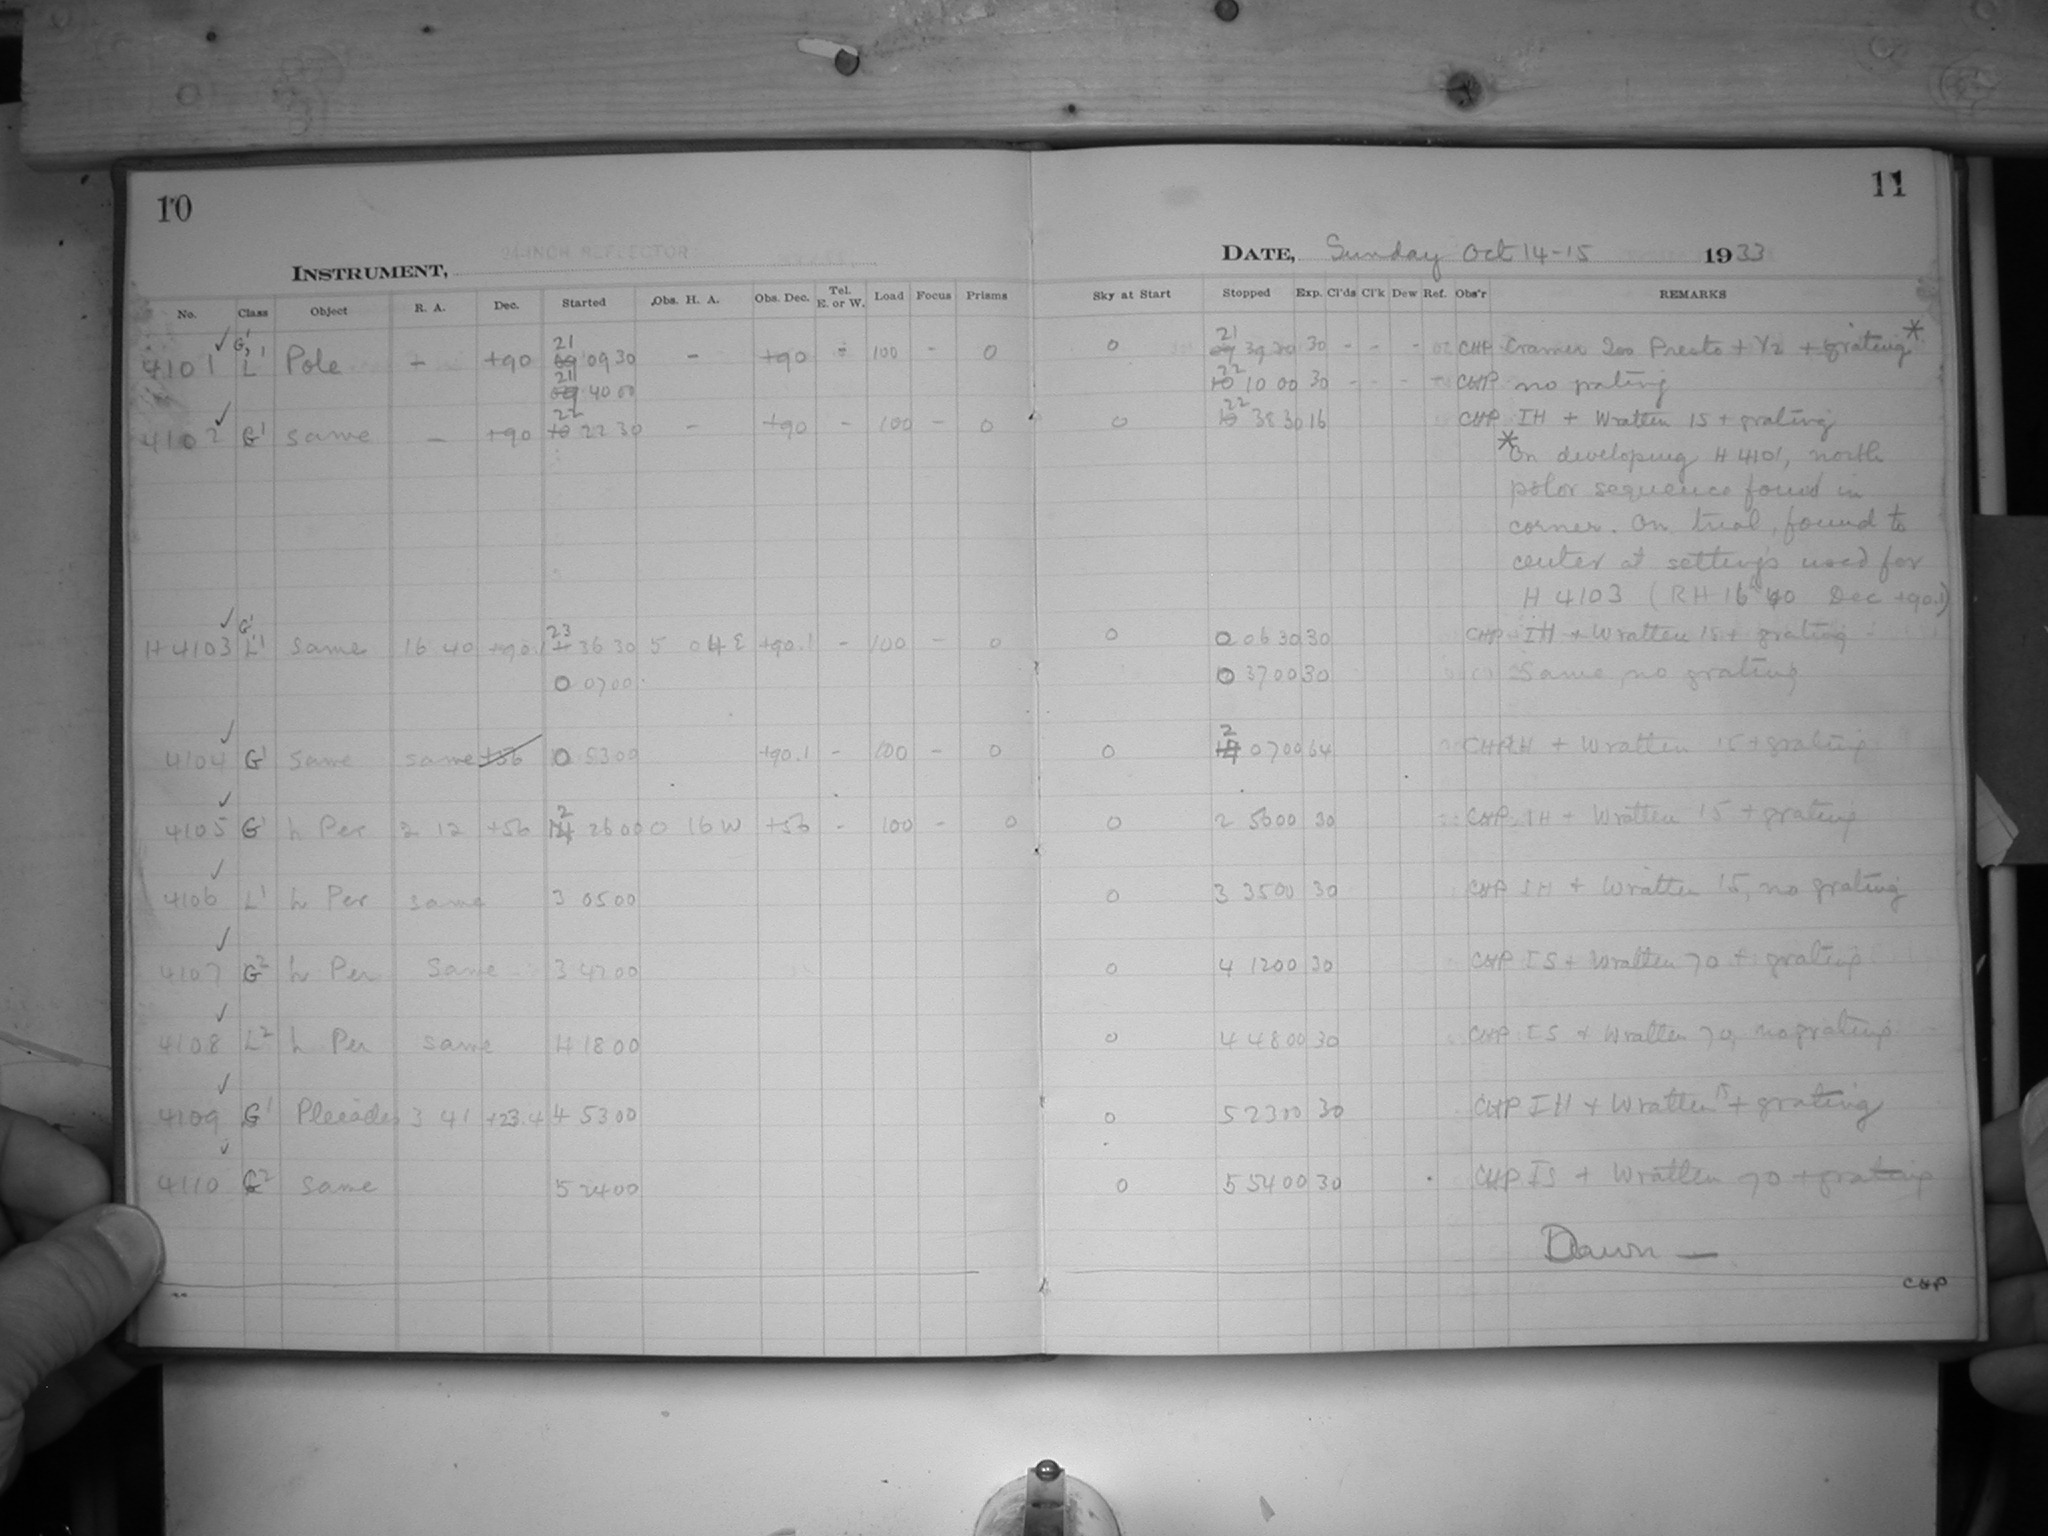 10
11
24-INCH REFLECTOR
INSTRUMENT,
DATE, Sunday Oct 14-15 1933
No. Class Object R. A. Dec. Started Obs. H. A. Obs. Dec. Tel. E. or W. Load Focus Prisms Sky at Start Stopped Exp. Cl'ds Cl'k Dew Ref. Obs'r REMARKS
4101 G1, L1 Pole - +90 21 09 09 30 - +90 - 100 - 0 0 21 09 39 30 30 - - - CHP Cramer 200 Presto + Y2 + grating*
21 09 40 00 22 10 10 00 30 - - - - CHP no grating
4102 G1 same - +90 22 10 22 30 - +90 - 100 - 0 0 22 10 38 30 16 CHP IH + Wratten 15 + grating
*On developing H 4101, north
polar sequence found in
corner. On trial, found to
center at settings used for
H 4103 (RH 16h 40 Dec +90.1)
H 4103 G1 L1 same 16 40 +90.1 23 36 30 5 04 E +90.1 - 100 - 0 0 0 06 30 30 CHP IH + Wratten 15 + grating
0 07 00 0 37 00 30 Same, no grating
4104 G1 same same +56 0 53 00 +90.1 - 100 - 0 0 2 07 00 64 CHP IH + Wratten 15 + grating
4105 G1 h Per 2 12 +56 2 26 00 0 16 W +56 - 100 - 0 0 2 56 00 30 CHP IH + Wratten 15 + grating
4106 L1 h Per same 3 05 00 0 3 35 00 30 CHP IH + Wratten 15, no grating
4107 G2 h Per Same 3 42 00 0 4 12 00 30 CHP IS + Wratten 70 + grating
4108 L2 h Per same 4 18 00 0 4 48 00 30 CHP IS + Wratten 70, no grating
4109 G1 Pleiades 3 41 +23.4 4 53 00 0 5 23 00 30 CHP IH + Wratten 15 + grating
4110 G2 same 5 24 00 0 5 54 00 30 CHP IS + Wratten 70 + grating
Dawn —
CHP